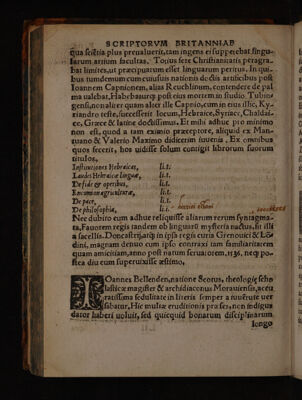 SCRIPTORVM BRITANNIAE
qua sciētia plus præualuerit, tam ingens ei suppetebat singu-
larum artium facultas. Totius ferè Christianitatis peragra-
bat limites, ut præcipuarum esset linguarum peritus. In qui-
bus tandem cum cuiusuis nationis doctis artificibus post
Ioannem Capnionem, alias Reuchlinum, contendere de pal
ma ualebat. Habebatur is post eius mortem in studio Tubin-
gensi, non aliter quam alter ille Capnio, cum in eius illic, Ky-
riandro teste, successerit locum, Hebraicæ, Syricæ, Chaldai-
cæ, Græcæ & latinæ doctissimus. Et mihi adhuc pro minimo
non est, quod a tam eximio præceptore, aliquid ex Man-
tuano & Valerio Maximo didicerim iuuenis. Ex omnibus
quos fecerit, hos uidisse solum contigit librorum suorum
titulos.
Institutiones Hebraicas, li.1.
Laudes Hebraicæ linguæ, li.1.
De fide & operibus, li.1.
Encomion agriculturæ, li.1.
De pace, li.1.
De philosophia, li.1.
Nec dubito eum adhuc reliquisse aliarum rerum syntagma-
ta. Fauorem regis tandem ob linguarū mysteria nactus, fit illi
a sacellis. Doncasterq; in ipsa regis curia Grenouici & Lō-
dini, magnam denuo cum ipso contraxi tam familiaritatem
quam amicitiam, anno post natum seruatorem, 1536. neq; po-
stea diu eum superuixisse æstimo.
IOannes Bellenden, natione Scotus, theologię scho
lasticæ magister & archidiaconus Morauiensis, accu
ratissima sedulitate in literis semper a iuuētute uer
sabatur. Hic multæ eruditionis præses, non indignus
dator haberi uoluit, sed quicquid bonarum disciplinarum
longo